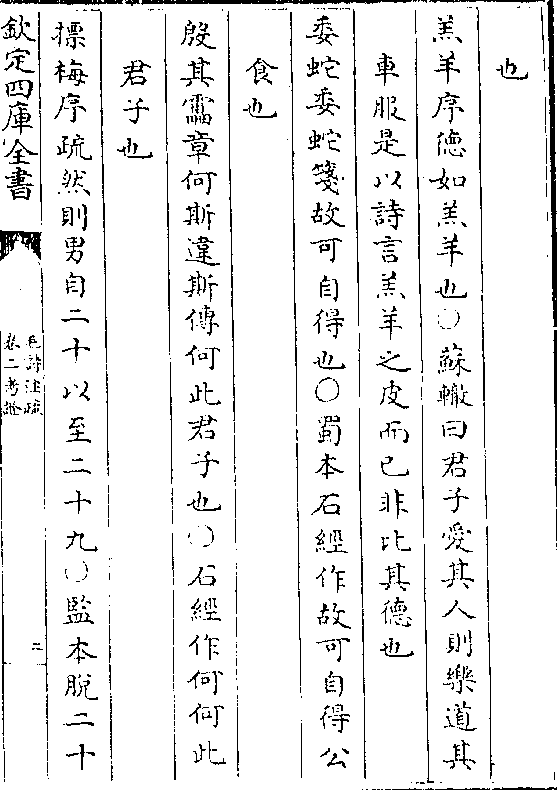 也
羔羊序德如羔羊也○蘇轍曰君子愛其人則樂道其
車服是以詩言羔羊之皮而已非比其德也
委蛇委蛇箋故可自得也○蜀本石經作故可自得公
食也
殷其靁章何斯違斯傳何此君子也○石經作何何此
君子也
摽梅序疏然則男自二十以至二十九○監本脫二十
欽定四庫全書
毛詩注疏
卷二考證
三